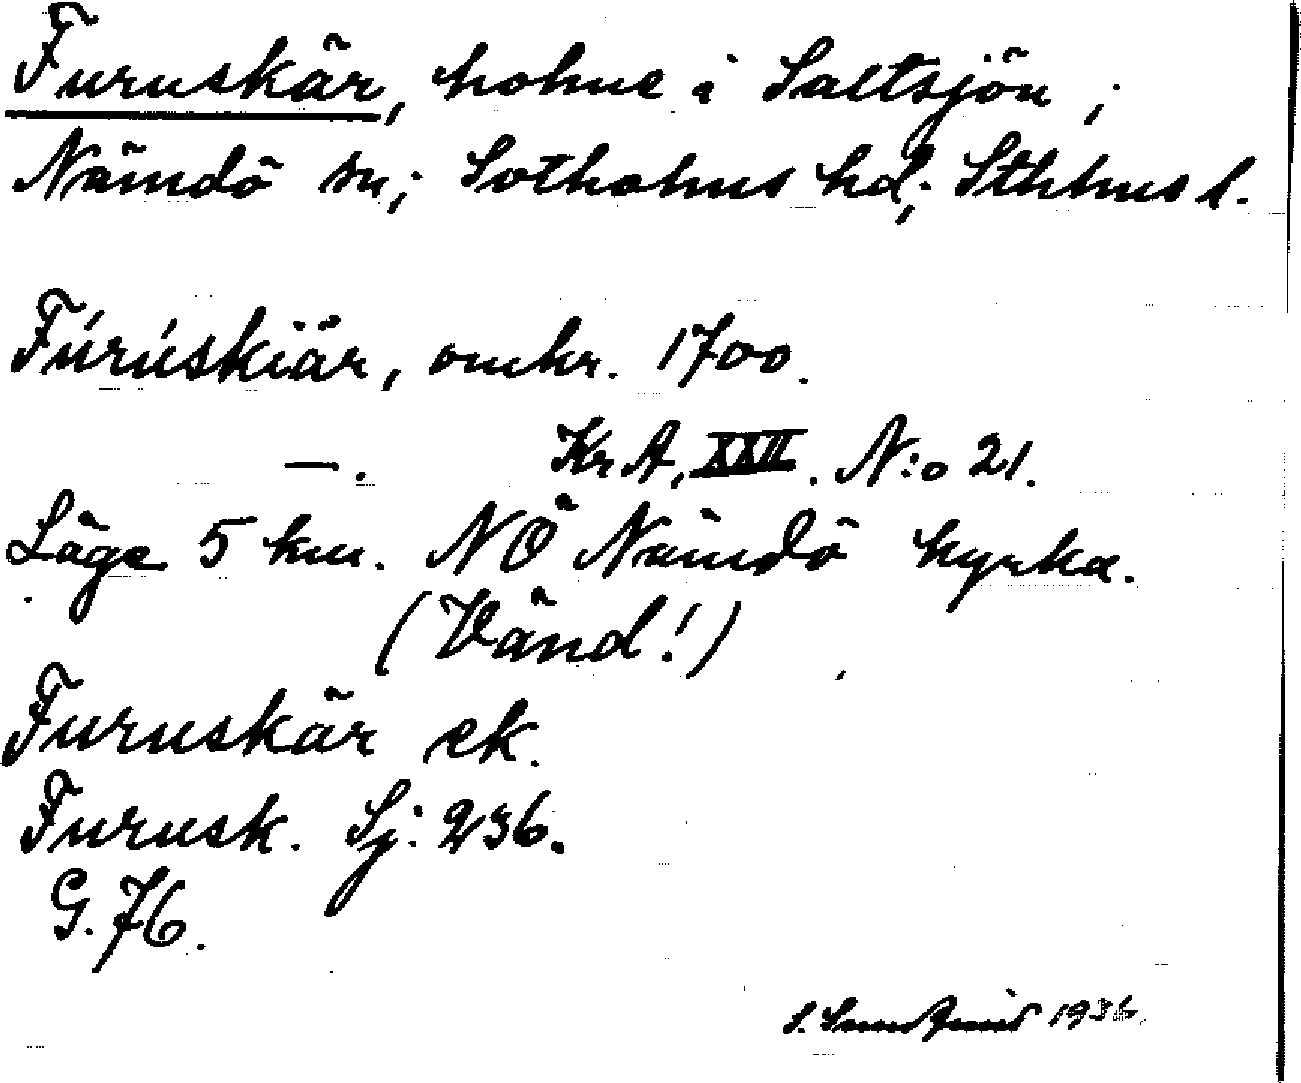 Furuskär, holme i Saltsjön;
Nämdö sn; Sotholms hd; Sthlms l.
Fúrúskiär, omkr. 1700.
—. Kr. A, XXII. N:o 21.
Läge 5 km. NÖ Nämdö kyrka.
(Vänd!)
Furuskär ek.
Furusk. Sj: 236.
G. 76.
S. 1936